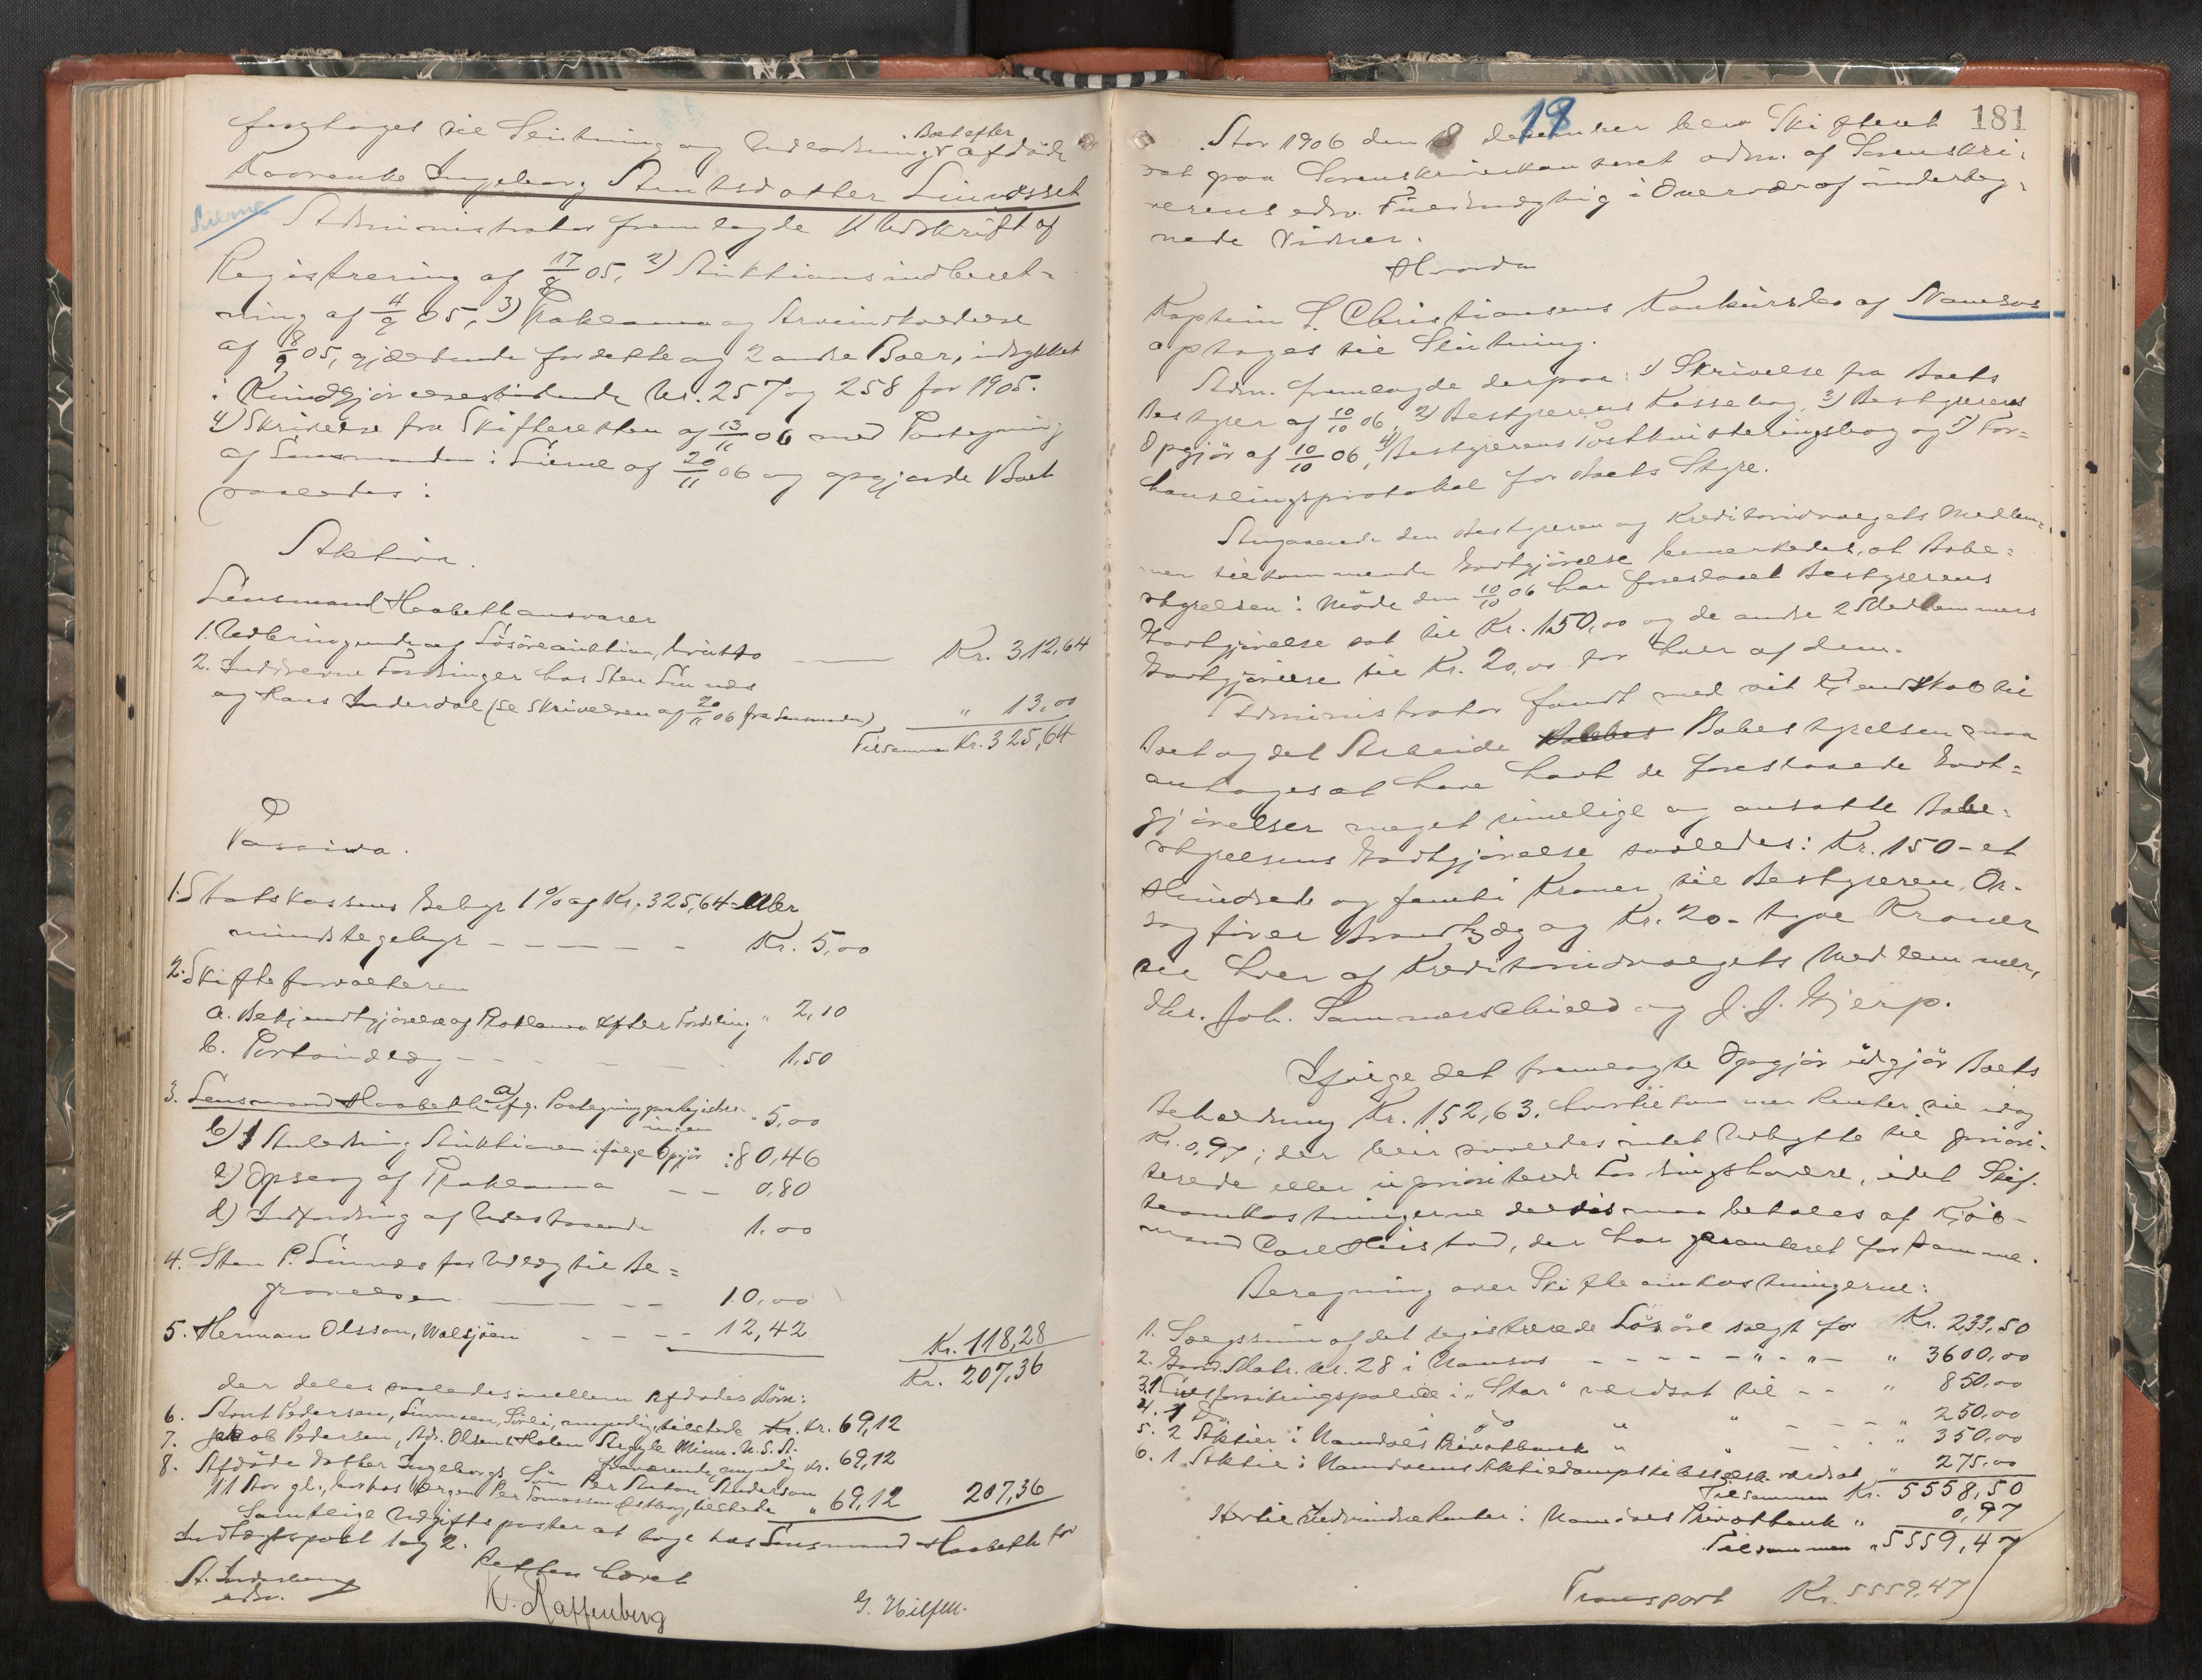 foretages til Slutning og Udlodning
Boet efter
afdöde
Kaarenke Ingeborg Arntsdatter Linnæsset
Lierne
Administrator fremlagde 1) Udskrift af
Registrering af 17/8 05, 2) Auktionsindberet-
ning af 4/9 05, 3) Proklama og Arveindkaldelse
af 8/9 05, gjældende for dette og 2 andre Boer, indrykket
i Kundgjörelsestidende Nr. 257 og 258 for 1905.
4) Skrivelse fra Skifteretten af 13/11 06 med Paategning
af Lensmanden i Lierne af 20/11 06 og opgjorde Boet
saaledes:
Aktiva.
Lensmand Haabeth ansvarer
1. Udbringende af Lösöreauktion, brutto Kr. 312,64
2. Inddrevne Fordringer hos Sten Linnæs
og Hans Inderdal (se Skrivelsen af 20/11 06 fra Lensmanden) " 13,00
Tilsammen Kr. 325,64
Passiva.
1. Statskassens Gebyr 1% af Kr. 325,64 eller
mindstegebyr Kr. 5,00
2. Skifteforvalteren
a. Bekjendtgjörelse af Proklama efter Fordeling " 2,10
b. Portoudlæg 1,50
3. Lensmand Haabeth a) ifg. Paategning paa
" 5,00
b) Anledning Auktionen ifölge Opgjör : 80,46
c) Opslag af Proklama 0,80
d) Indfordring af Udestaaende 1,00
4. Sten P. Linnæs for Udlæg til Be-
gravelsen 10,00
5. Herman Olsson, Valsjöen 12,42 Kr. 118,28
Kr. 207,36
der deles saaledes mellem Afdødes Börn:
6. Arnt Pedersen, Sörli, myndig, tilstede Kr. 69,12
7. Jakob Pedersen, Adr. Olsen Argyle Minn. U.S.A.
fraværende, myndig Kr. 69,12
8. Afdöde datter Ingeborgs Sön Per Anton Anderson
11 Aar gl., hos Værgen Per Tomassen Estborg, tilstede " 69,12 207,36
Samtlige Udgiftsposter at tage hos Lensmand Haabeth for
Indtægtspost 1 og 2.
Retten hævet
edsv.
K. Raffenberg
181
19
Aar 1906 den 18 december blev Skifteret
sat paa Sorenskriverkontoret adm. af Sorenskri-
verens edsv. Fuldmægtig i Overvær af underteg-
nede Vidner.
Hvorda
Kaptein S. Christiansens Konkursbo af Namsos
optages til Slutning.
Adm. fremlagde derpaa: 1) Skrivelse fra Boets
Bestyrer af 10/10 06, 2) Bestyrerens Kassebog, 3) Bestyrerens
Opgjör af 10/10 06, 4) Bestyrerens Postkvitteringsbog og 5) For-
handlingsprotokol for Boets Styre.
Angaaende den Bestyreren og Kreditorudvalgets Medlem-
mer tilkommende Godtgjörelse bemerkedes, at Bobe-
styrelsen i Möde den 10/10 06 har foreslaaet Bestyrerens
Godtgjörelse sat til Kr. 150,00 og de andre 2 Medlemmers
Godtgjörelse til Kr. 20,00 for hver af dem.
Administrator fandt med sit Kjendskab til
Boet og det Arbeide Bobestyrelsen maa
antages at have havt de foreslaaede Godt-
gjörelser meget rimelige og ansatte Bobe-
styrelsens Godtgjörelse saaledes: Kr. 150 - et
Hundrede og femti Kroner til Bestyreren, Ov-
sagförer Brandtzæg og Kr. 20 - tyve Kroner
til hver af Kreditorudvalgets Medlemmer,
dHr. Joh. Sommerschield og J. J. Gjerp.
Ifölge det fremlagte Opgjör udgjör Boets
Beholdning Kr. 152,63, hvortil kommer Renter til idag
Kr. 0,97; der blir saaledes intet Udbytte til priori-
terede eller uprioriterede Fordringshavere, idet Skif-
teomkostningerne deels maa betales af Kjöb-
mand Carl Heistad, der har garanteret for samme.
Beregning over Skifteomkostningerne:
1. Salgssum af det registrerede Lösöre solgt for Kr. 233,50
2. Gaard Matr. Nr. 28 i Namsos " 3600,00
3. 1 Livsforsikringspolice i "Star" værdsat til " 850,00
4. 1 do i do " " 250,00
5. 2 Aktier i Namdals Privatbank " " 350,00
6. 1 Aktie i Namdalens Aktiedampskibsselsk. værdsat " 275,00
Tilsammen Kr. 5558,50
Hertil Renter i Namdals Privatbank " 0,97
Tilsammen " 5559,47
Transport Kr. 5559,47